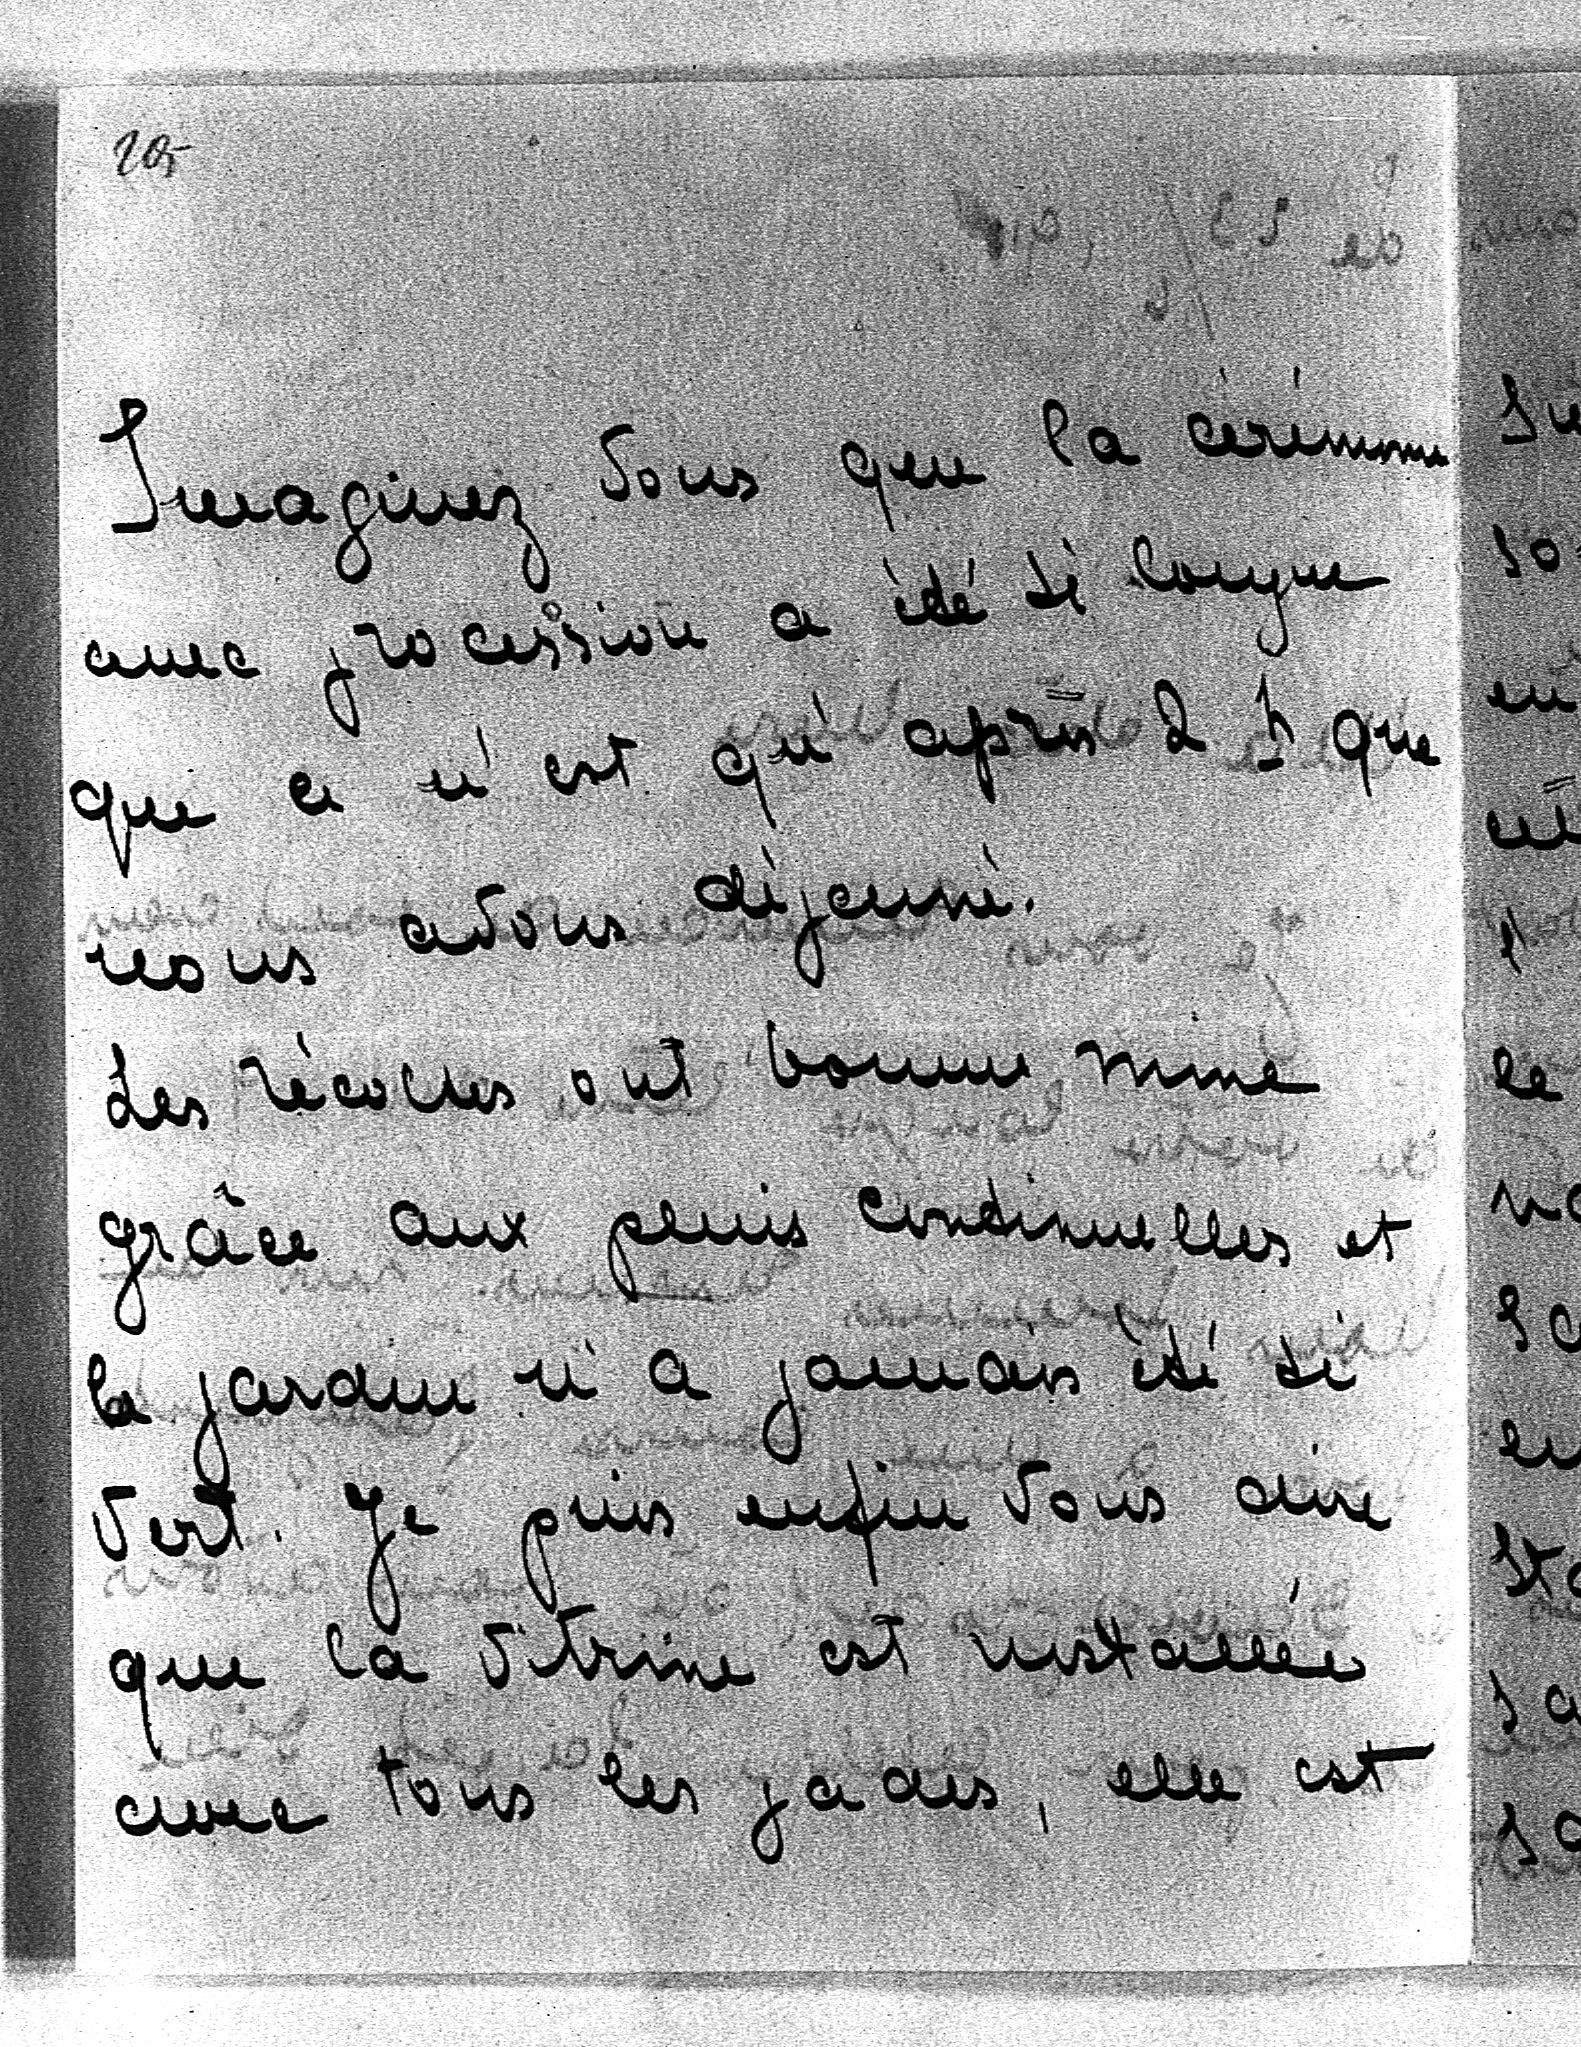 205
Imaginez vous que la cérémonie
avec procession a été si longue
que ce n'est qu'après 2 h que
nous avons déjeuné.
Les récoltes ont bonne mine
grâce aux pluies continuelles et
le jardin n'a jamais été si
vert. Je puis enfin vous dire
que la vitrine est installée
avec tous les jades, elle est